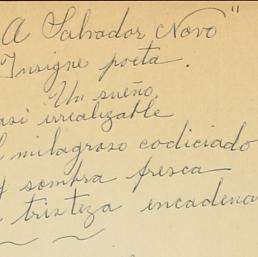 A Salvador Novo"
Insigne poeta.
Un sueño,
asi irrealizable
l milagroso codiciado
y sombra fresca
tristeza encadena